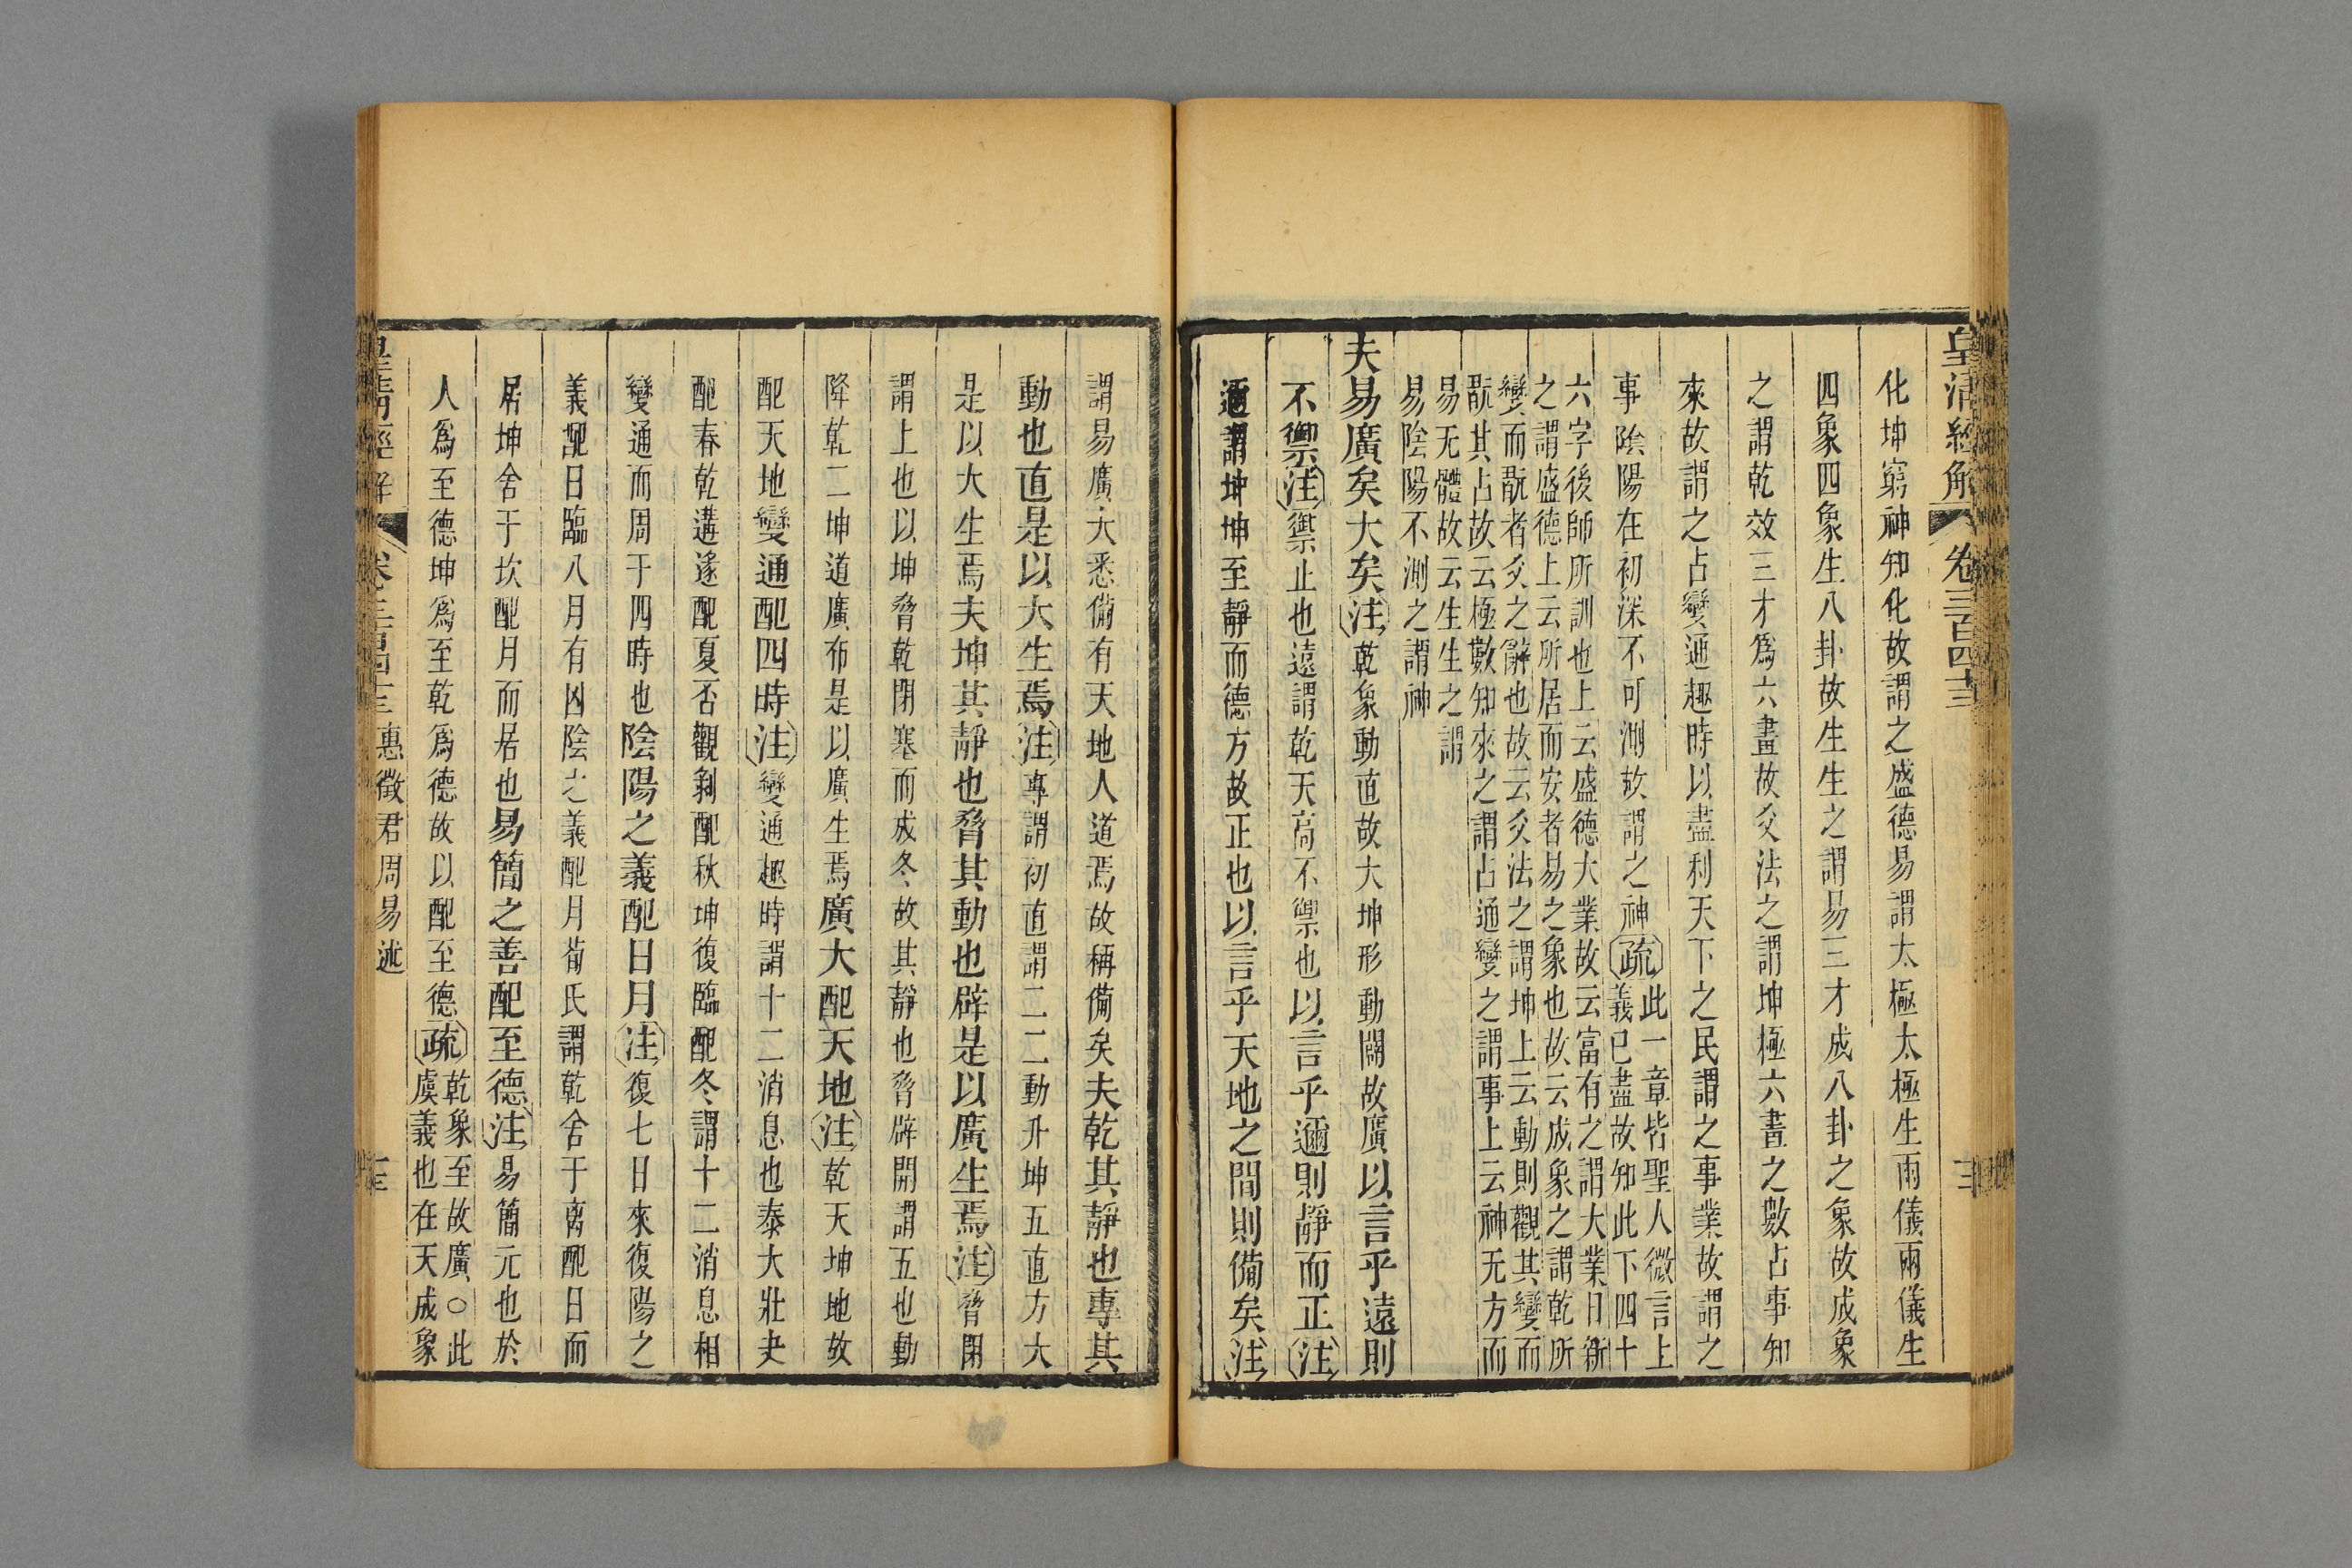 皇清經解 卷三百四十三
化坤窮神知化故謂之盛德易謂太極太極生兩儀兩儀生
四象四象生八卦故生生之謂易三才成八卦之象故成象
之謂乾效三才爲六畫故爻法之謂坤極六畫之數占事知
來故謂之占變通趣時以盡利天下之民謂之事業故謂之
事陰陽在初深不可測故謂之神疏
此一章皆聖人微言上
義已盡故知此下四十
六字後師所訓也上云盛德大業故云富有之謂大業日新
之謂盛德上云所居而安者易之象也故云成象之謂乾所
變而翫者爻之辭也故云爻法之謂坤上云動則觀其變而
翫其占故云極數知來之謂占通變之謂事上云神无方而
易无體故云生生之謂
易陰陽不測之謂神
夫易廣矣大矣注乾象動直故大坤形動闢故廣以言乎遠則
不禦注禦止也遠謂乾天高不禦也以言乎邇則靜而正注
邇謂坤坤至靜而德方故正也以言乎天地之間則備矣注
謂易廣大悉備有天地人道焉故稱備矣夫乾其靜也專其
動也直是以大生焉注專謂初直謂二二動升坤五直方大
是以大生焉夫坤其靜也脅其動也辟是以廣生焉注脅閉
謂上也以坤脅乾閉塞而成冬故其靜也脅辟開謂五也動
降乾二坤道廣布是以廣生焉廣大配天地注乾天坤地故
配天地變通配四時注變通趣時謂十二消息也泰大壯夬
配春乾遘遂配夏否觀剝配秋坤復臨配冬謂十二消息相
變通而周于四時也陰陽之義配日月注復七日來復陽之
義配日臨八月有凶陰之義配月荀氏謂乾舍于离配日而
居坤舍于坎配月而居也易簡之善配至德注易簡元也於
人爲至德坤爲至乾爲德故以配至德疏
乾象至故廣○此
虞義也在天成象
皇清經解 卷三百四十三 惠徵君周易述 十三